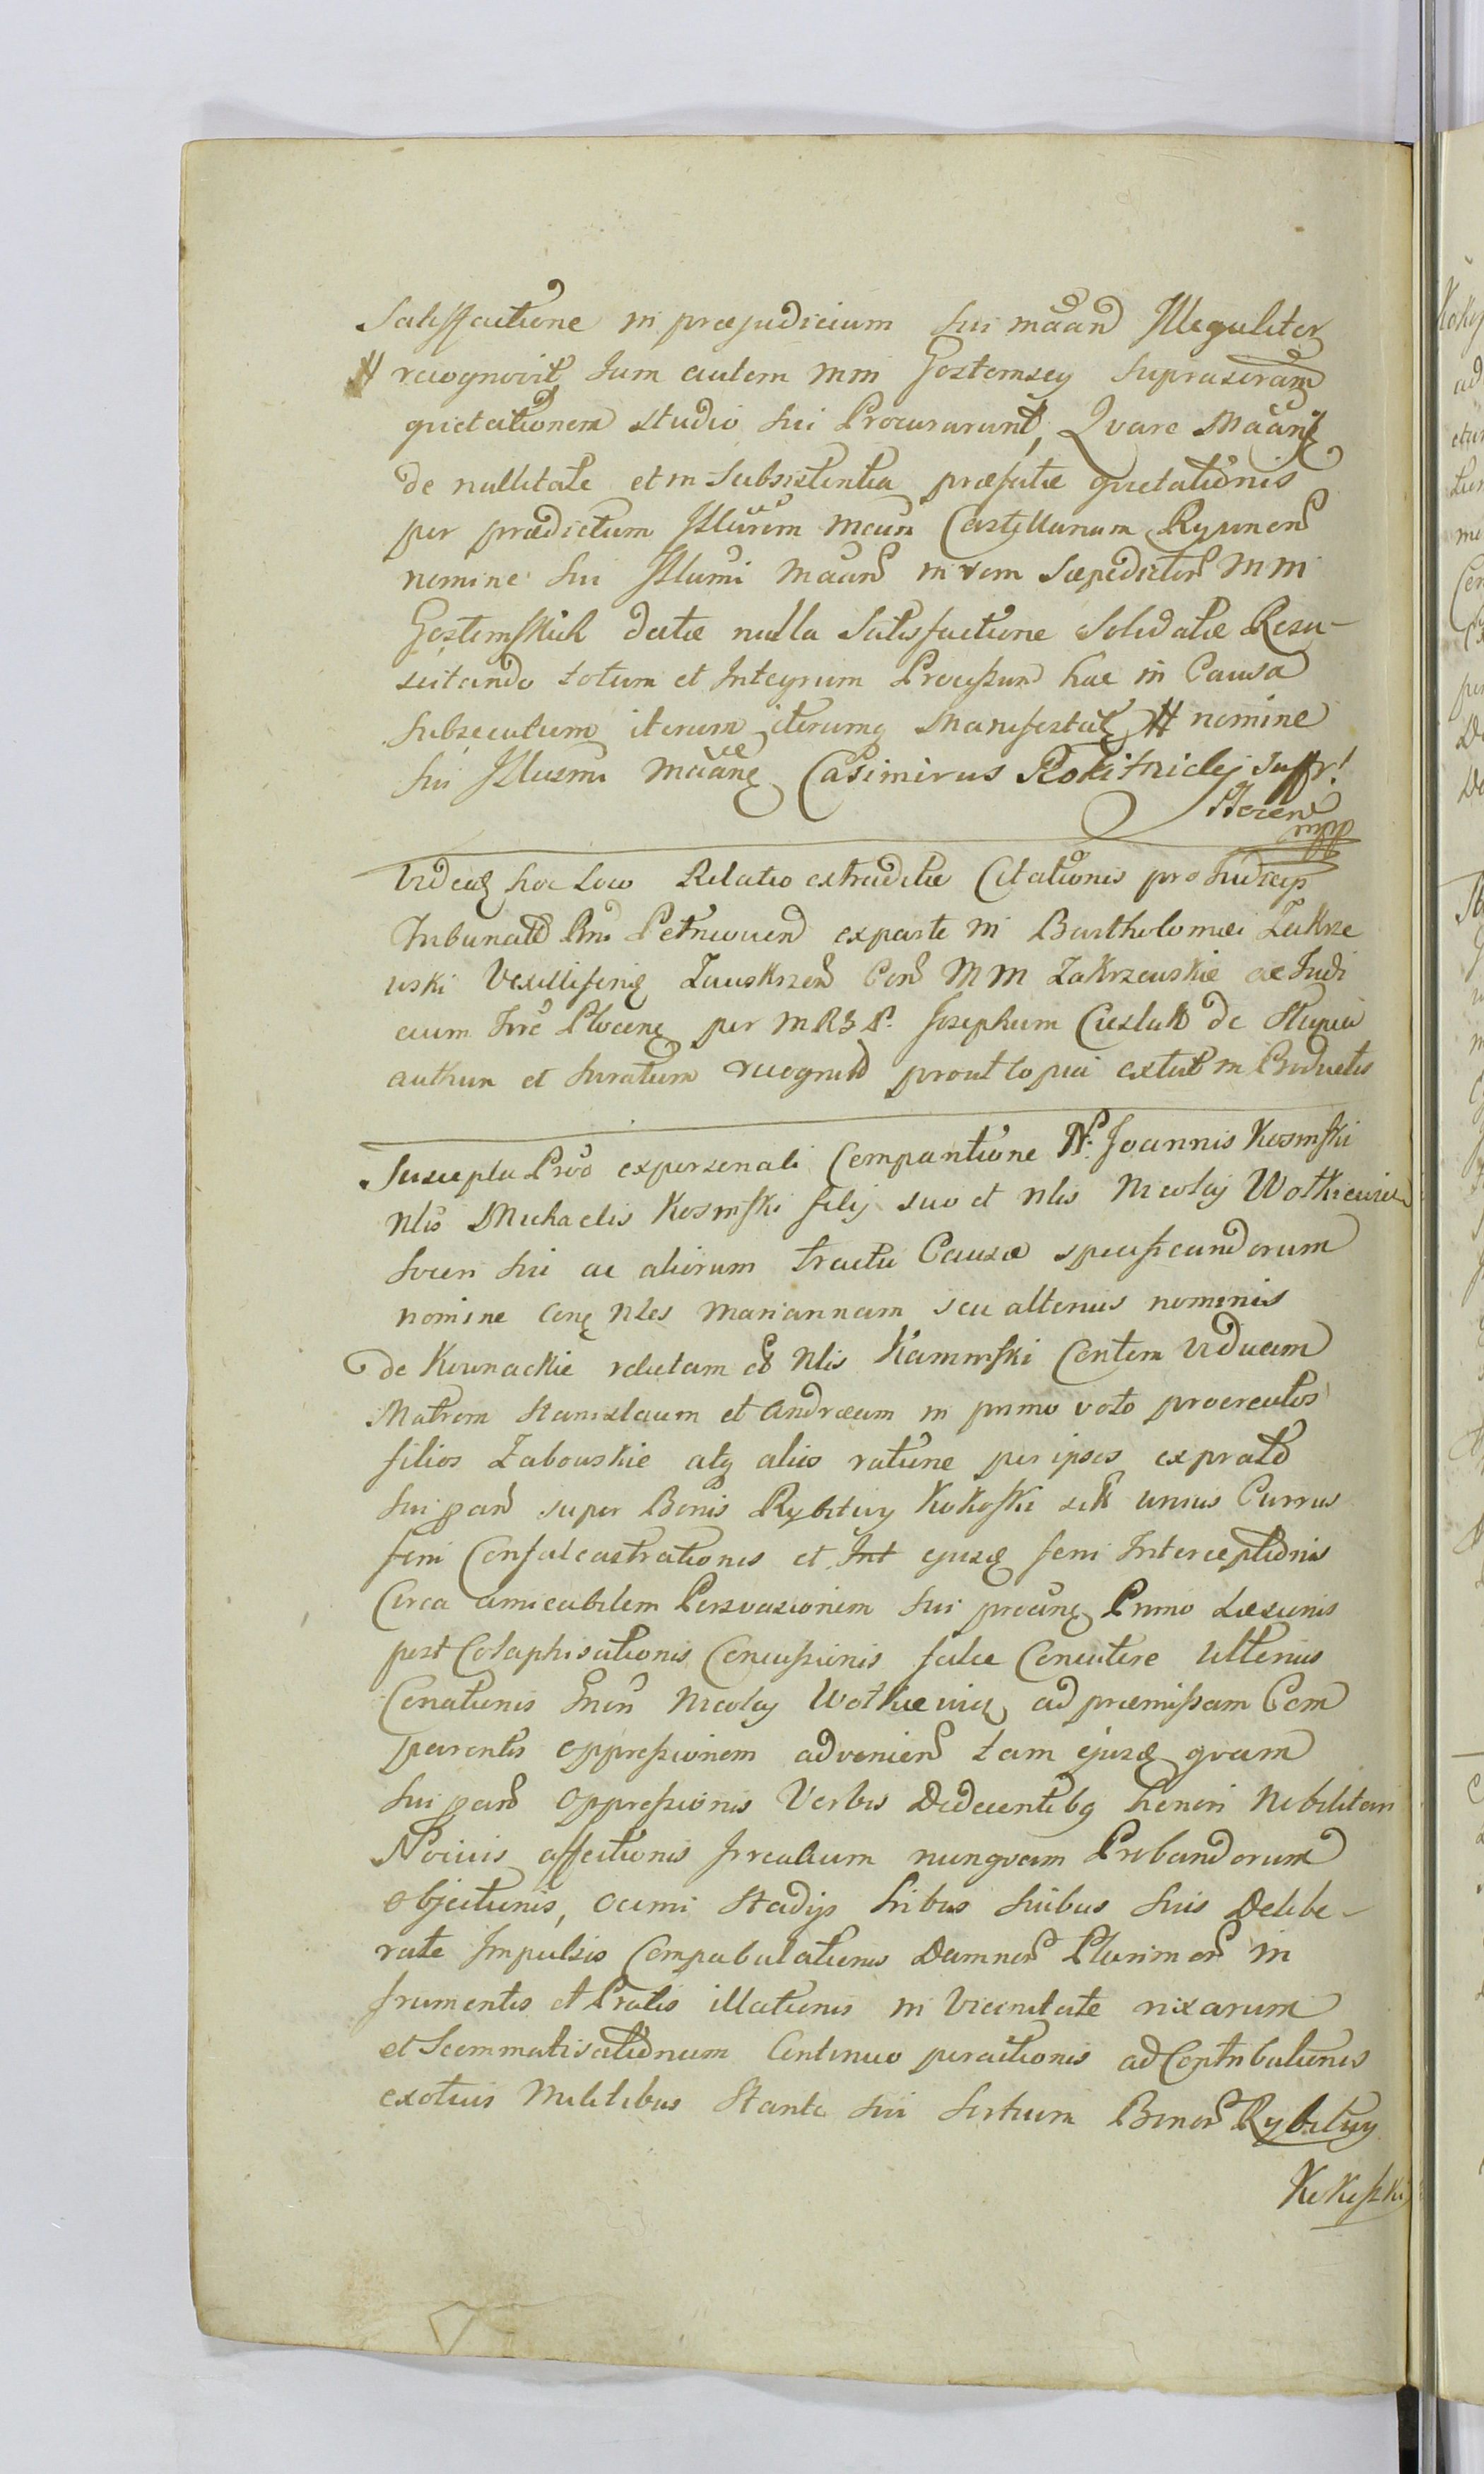 Satisfactione in praejudicium sui mãand Illegaliter
# recognovit, tum autem mm Gostomscy suprascram
quietationem studio sui Procurarunt, Qvare Mãanę
de nullitate et in subsistentia praefatae quietationis
per praedictum Illũrem Mcum Castellanum Rypinens
nomine sui Illumi Mãans in rem saepedictor MM
Gostomskich datae nulla Satisfactione Solidatae Resu-
scitando totum et Integrum Processum hac in Causa
subsecutum iterum iterumq Manifestat # nomine
sui Illusmi Mãanę Casimirus Rokitnicki
mpp
Videas hoc Loco Relatio extraditae Citationis pro Judiciis
Tribunalit Rni Petricovien ex parte M Bartholomaei Zakrze
wski Vexilliferię Zawskrzen Con MM Zakrzewskie ac Judi
cium Trre Plocenę per MRSP. Josephum Cieslak de Slupia
authen et juratum recognit prout Copia extat in Productis
Suscepta Prõo ex personali Comparitione N. Joannis Kosinski
Nlis Michaelis Kosinski filij suo et Nlis Nicolaj Wotkiewicz
Soceri sui ac aliorum tractu Causae specificandorum
nomine Conę Nles Mariannam seu alterius nominis
de Kownackie relictam ol Nlis Kaminski Contem Viduam
Matrem Stanislaum et Andraeam in primo voto procreatos
filios Zabowskie atq alios ratione per ipsos ex prato
sui pans super Bonis Rybitwy Kokoski sitt unius Currus
feni Confalcastrationis et Int ejusd feni Interceptionis
Circa amicabilem Persvasionem sui procunę Primo Laesionis
post Colaphisationis Concussionis falce Concutere Ulterius
Conationis Gnen Nicolaj Wotkiewicz ad praemissam Com
parentis oppressionem advenien tam ejusd qvam
sui pans Oppressionis Verbis Dedecentibq honori Nobilitari
Nocivis affectionis Irrealium nunqvam Probandorum
objectionis, Stadys tribus Suibus suis Delibe-
rate Impulsis Compabulationis Damnor Plurimor in
frumentis et Pratis illationis in Vicinitate rixarum
et Scommatisationum Continuo peractionis ad Contributionis
exoticis Militibus Stante sui Sortium Bonor Rybitwy
Kokoszki